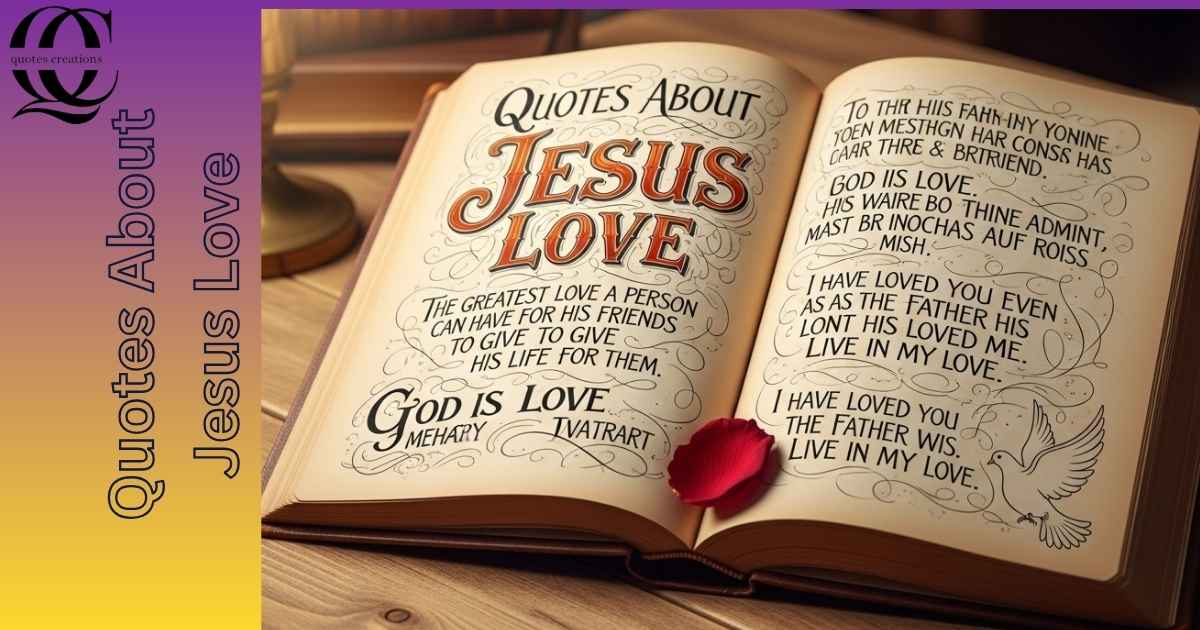 quotes creations
Quotes About
Jesus Love
QUOTES ABOUT
JESUS
LOVE
THE GREATEST LOVE A PERSON
CAN HAVE FOR HIS FRIENDS
TO GIVE TO GIVE
HIS LIFE FOR THEM.
GOD IS LOVE
MEHARY TVATRART
TO THR HIIS FAHH-IHY YONINE
TOEN MESTHGN HAR CONSS HAS
CAAR THRE & BRTRIEND.
GOD IIS LOVE.
HIS WAIRE BO THINE ADMINT,
MAST BR INOCHAS AUF ROISS
MISH.
I HAVE LOVED YOU EVEN
AS AS THE FATHER HIS
LONT HIS LOVED ME.
LIVE IN MY LOVE.
I HAVE LOVED YOU
THE FATHER WIS.
LIVE IN MY LOVE.